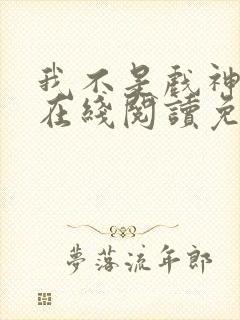 我不是戲神
在綫閱讀免
夢落流年郎